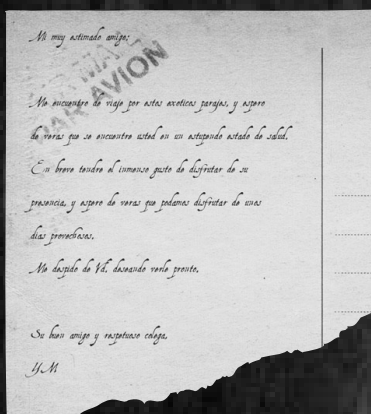 Mi muy estimado amigo:
PAR AVION
Me encuentro de viaje por estos exoticos parajes, y espero
de veras que se encuentre usted en un estupendo estado de salud.
En breve tendre el inmenso gusto de disfrutar de su
presencia, y espero de veras que podamos disfrutar de unos
dias provechosos.
Me despido de Vd. deseando verle pronto.
Su buen amigo y respetuoso colega,
Y.M